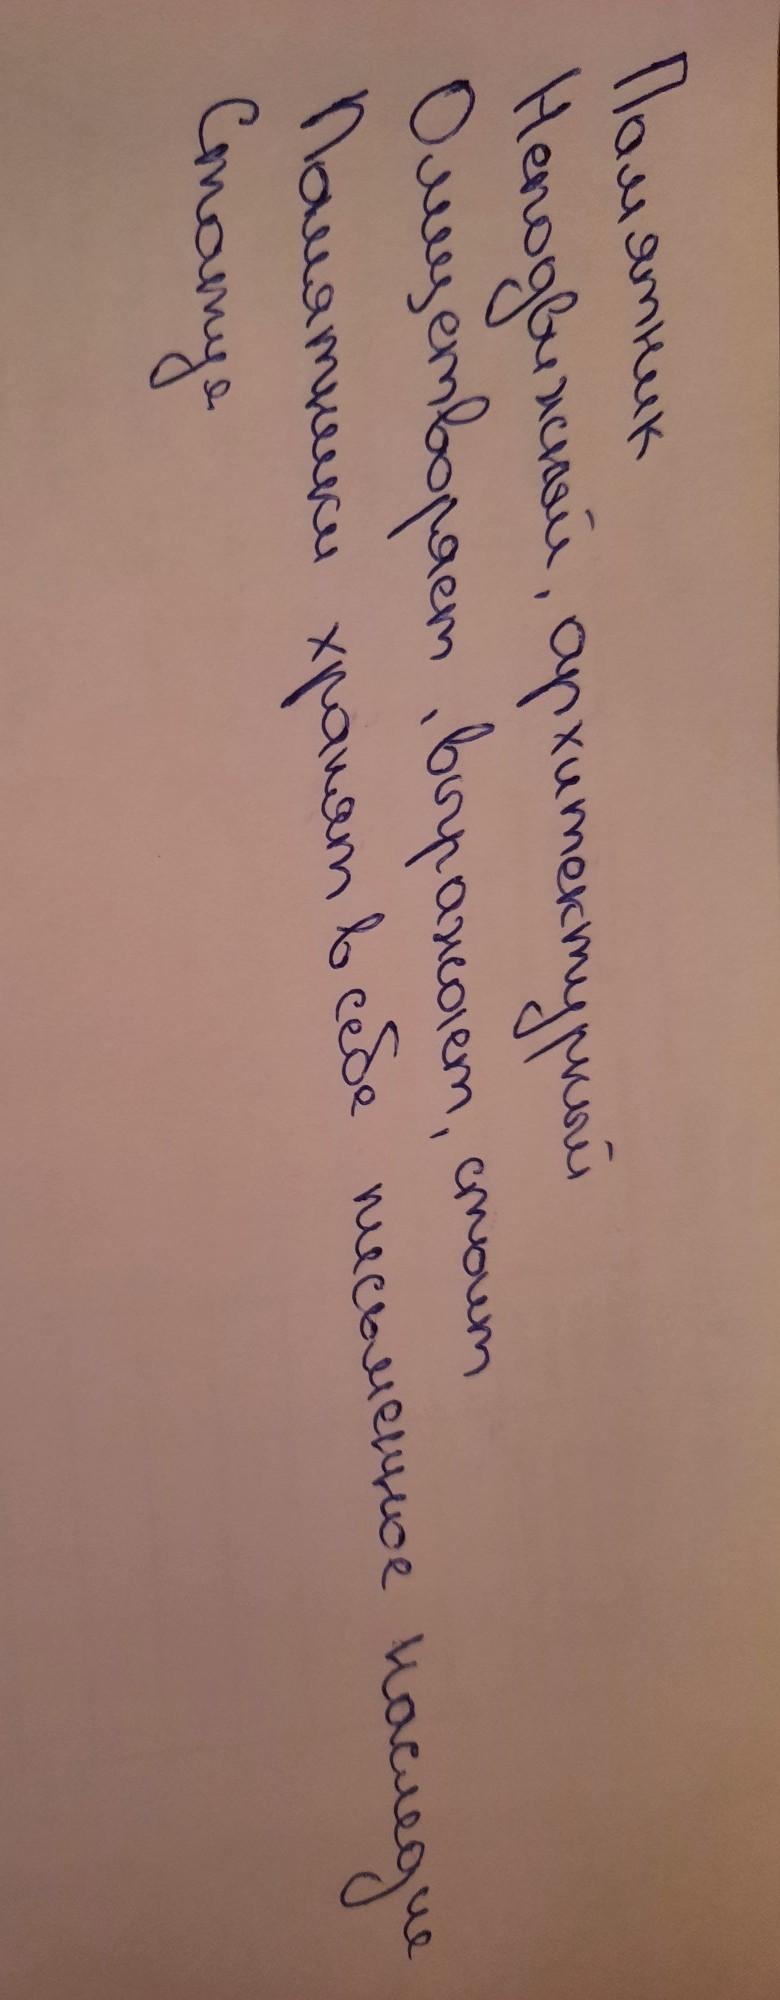 Памятник
Неподвижный, архитектурный
Олицетворяет, выражает, стоит
Памятники хранят в себе письменное наследие
Статуя